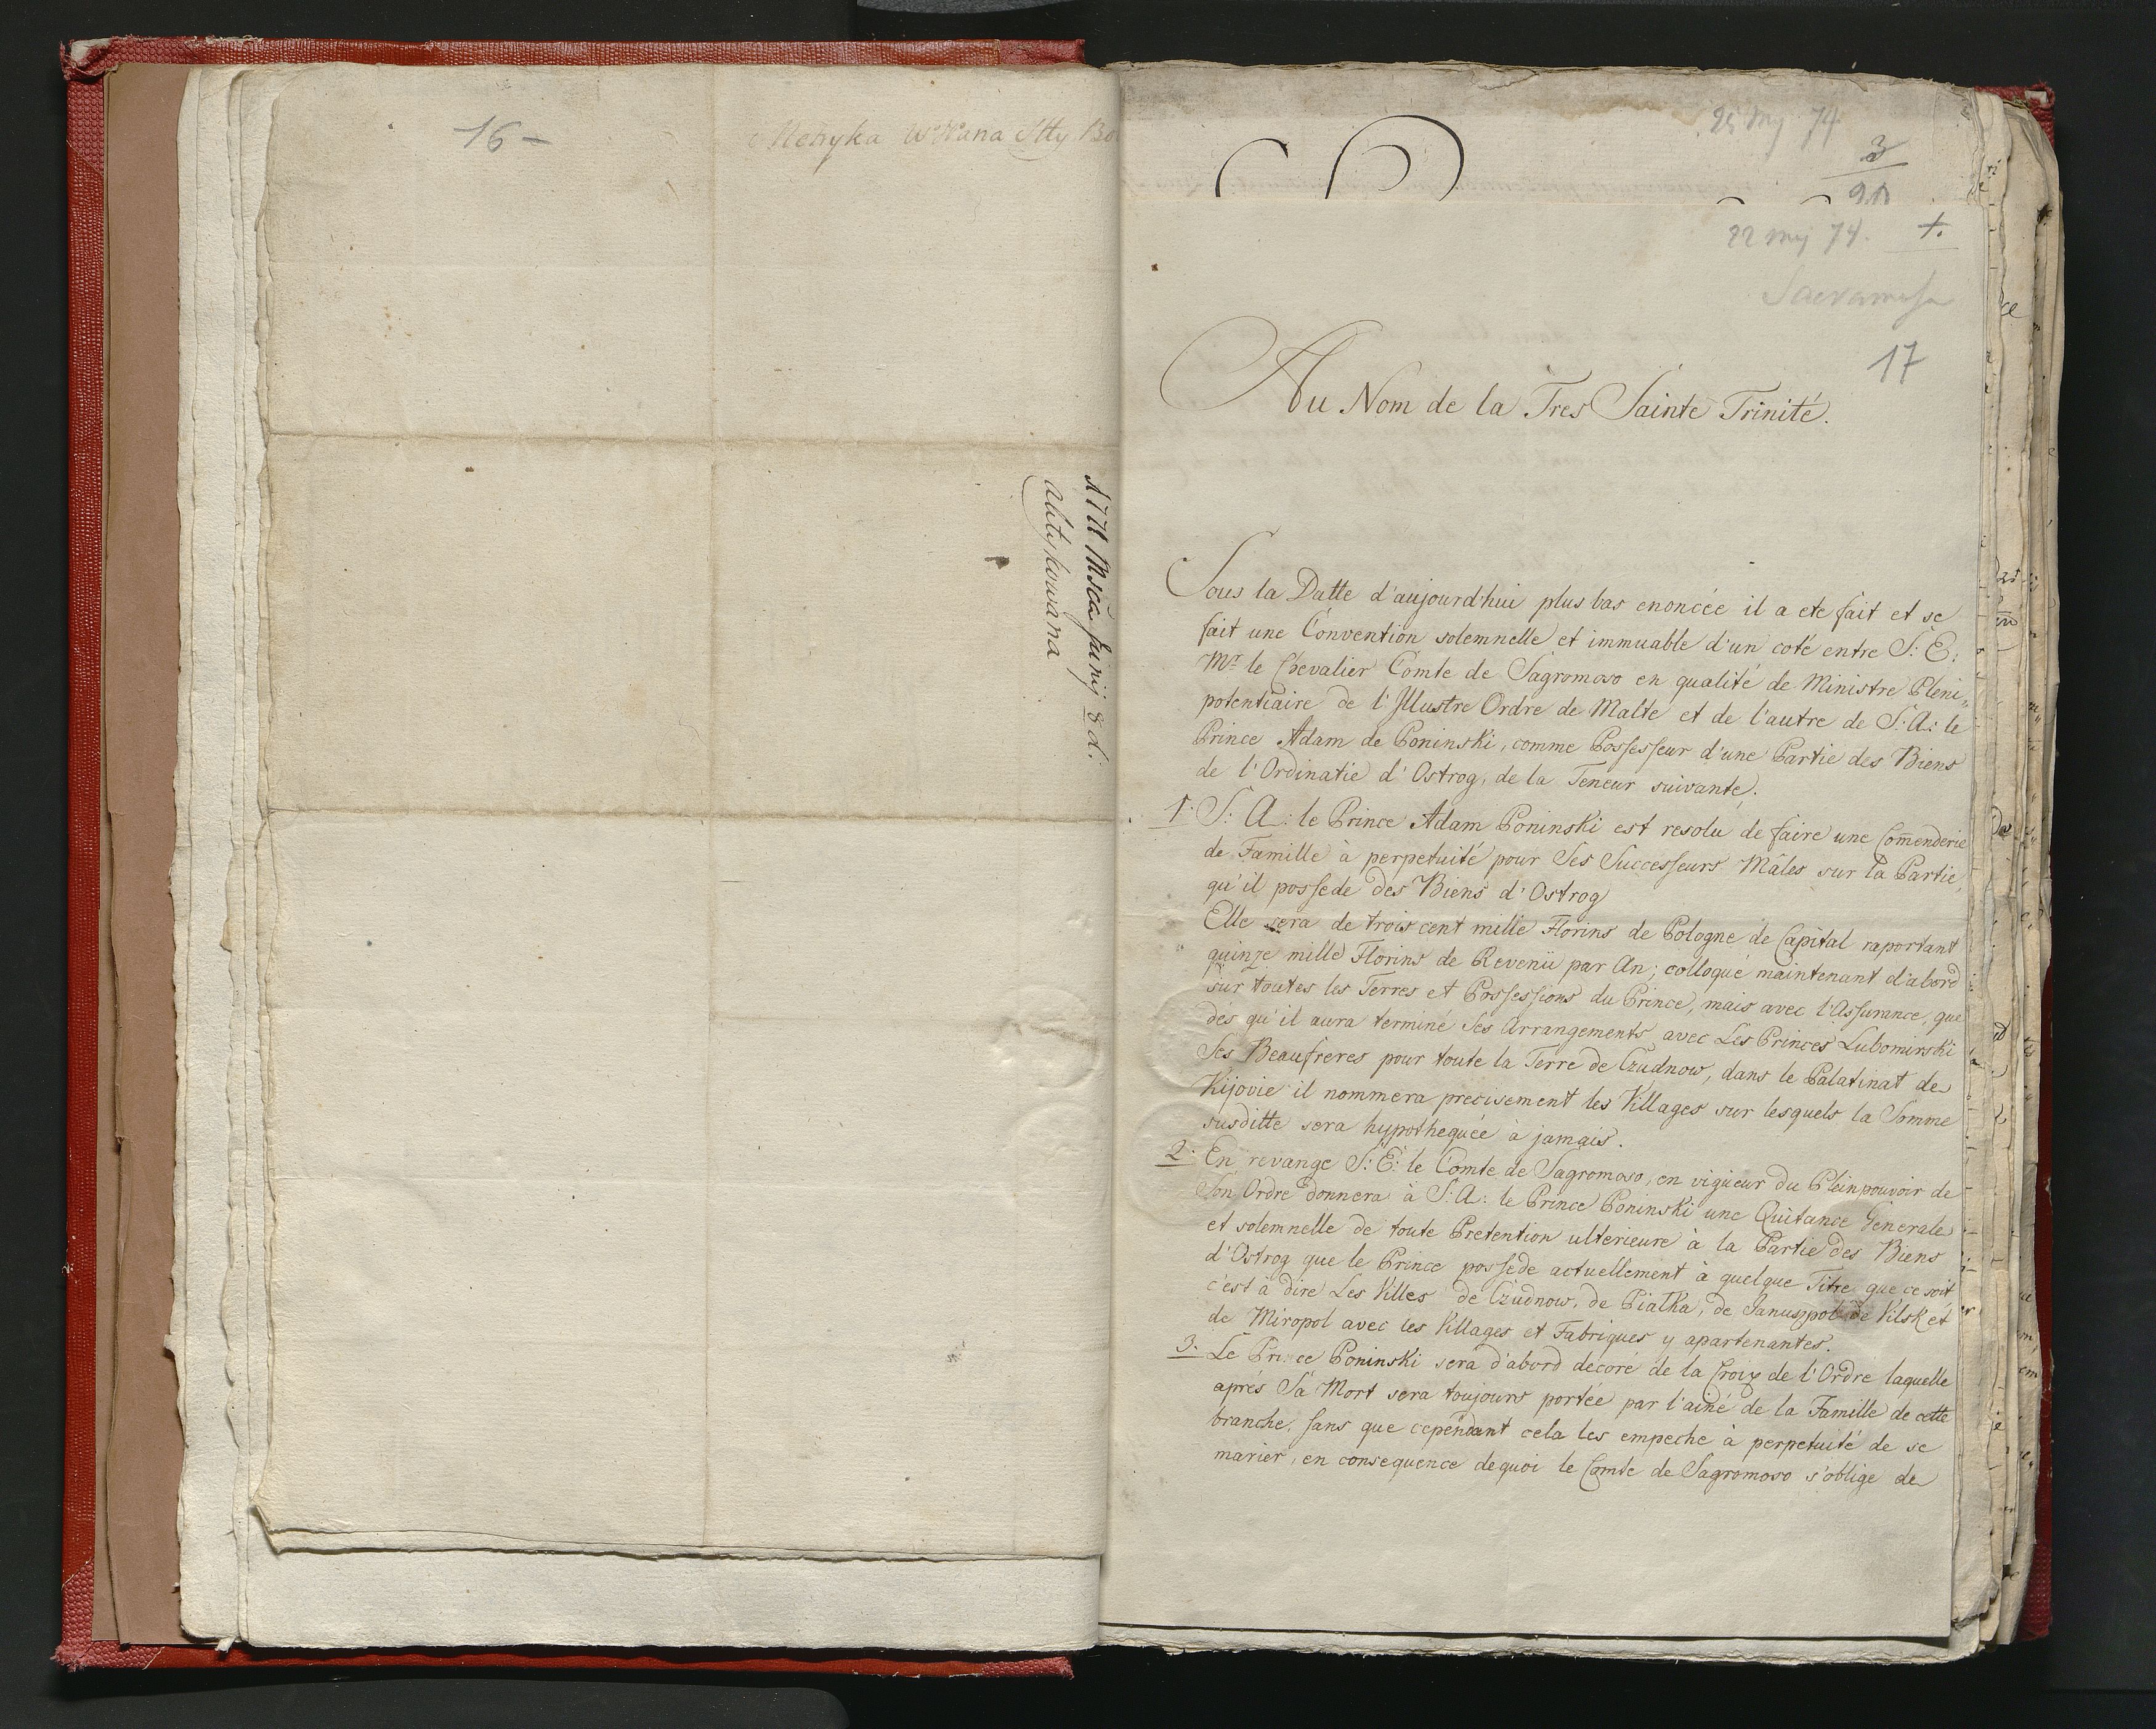 16 –
Metryka
1771 Msca Junij 8 d:
aktykowana
25 Mj 74
3
90
22 Mj 74. +.
Sacramosa
17
Au Nom de la Tres Sainte Trinité.
Sous la Datte d'aujourd'hui plus bas enoncée il a ete fait et se
fait une Convention solemnelle et immuable d'un coté entre S: E:
Mr le Chevalier Comte de Sagromoso en qualité de Ministre Pleni„
potentiaire de l'Illustre Ordre de Malte et de l'autre de S: A: le
Prince Adam de Poninski, comme Possesseur d'une Partie des Biens
de l'Ordinatie d'Ostrog, de la Teneur suivante.
1. S: A: le Prince Adam Poninski est resolu de faire une Comenderie
de Famille à perpetuité pour Ses Successeurs Mâles sur la Partie,
qu'il possede des Biens d'Ostrog
Elle sera de trois cent mille Florins de Pologne de Capital raportant
quinze mille Florins de Revenü par An; colloqué maintenant d'abord
sur toutes les Terres et Possessions du Prince, mais avec l'Assurance, que
dés qu'il aura terminé Ses Arrangements avec Les Princes Lubomirski
Ses Beaufreres pour toute la Terre de Czudnow, dans le Palatinat de
Kijovie il nommera precisement les Villages sur lesquels la Somme
susditte sera hypothequée à jamais.
2. En revange S: E: le Comte de Sagromoso, en vigüeur du Pleinpouvoir de
Son Ordre donnera à S: A: le Prince Poninski une Quitance Generale
et solemnelle de toute Pretention ulterieure à la Partie des Biens
d'Ostrog que le Prince possede actuellement à quelque Titre que ce soit
c'est à dire Les Villes de Czudnow, de Piatka, de Januszpol de Vilsk et
de Miropol avec les Villages et Fabriques y apartenantes.
3. Le Prince Poninski sera d'abord decoré de la Croix de l'Ordre laquelle
aprés Sa Mort sera toujours portée par l'ainé de la Famille de cette
branche, sans que cependant cela les empeche à perpetuité de se
marier, en consequence dequoi le Comte de Sagromoso s'oblige de